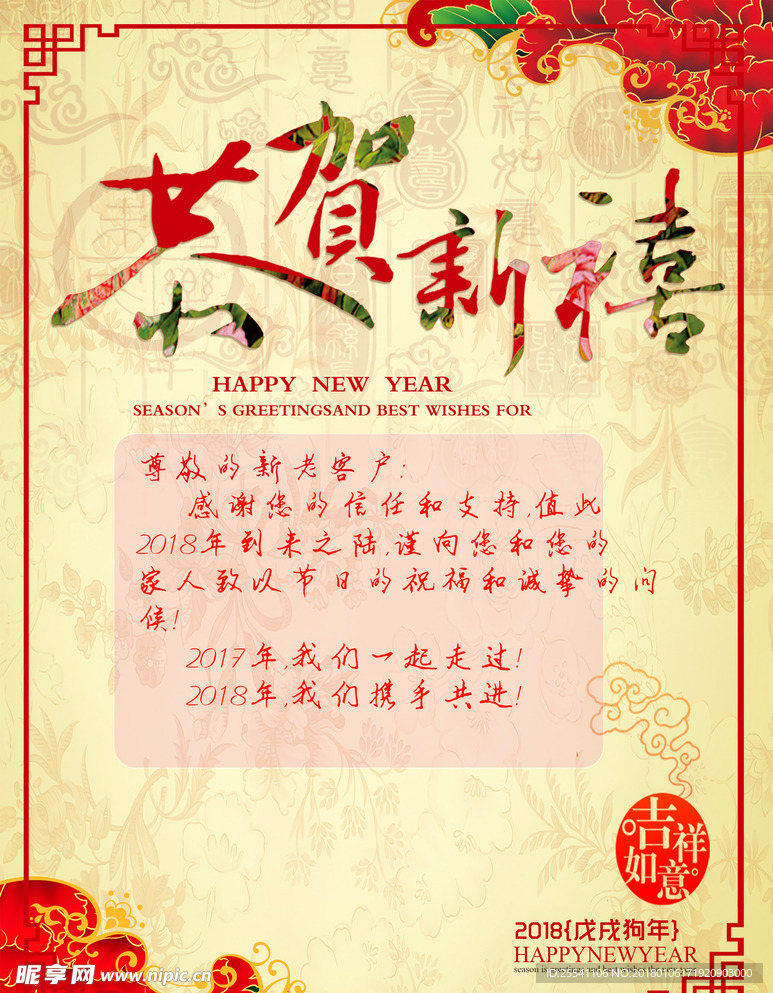 恭賀新禧
HAPPY NEW YEAR
SEASON'S GREETINGSAND BEST WISHES FOR
尊敬的新老客户:
感谢您的信任和支持,值此
2018年到来之陆,谨向您和您的
家人致以节日的祝福和诚挚的问
候!
2017年,我们一起走过!
2018年,我们携手共进!
吉祥
如意
2018{戊戌狗年}
HAPPYNEWYEAR
season is
昵享网 www.nipic.cn
ID:25541106 NO:20180106171920903000